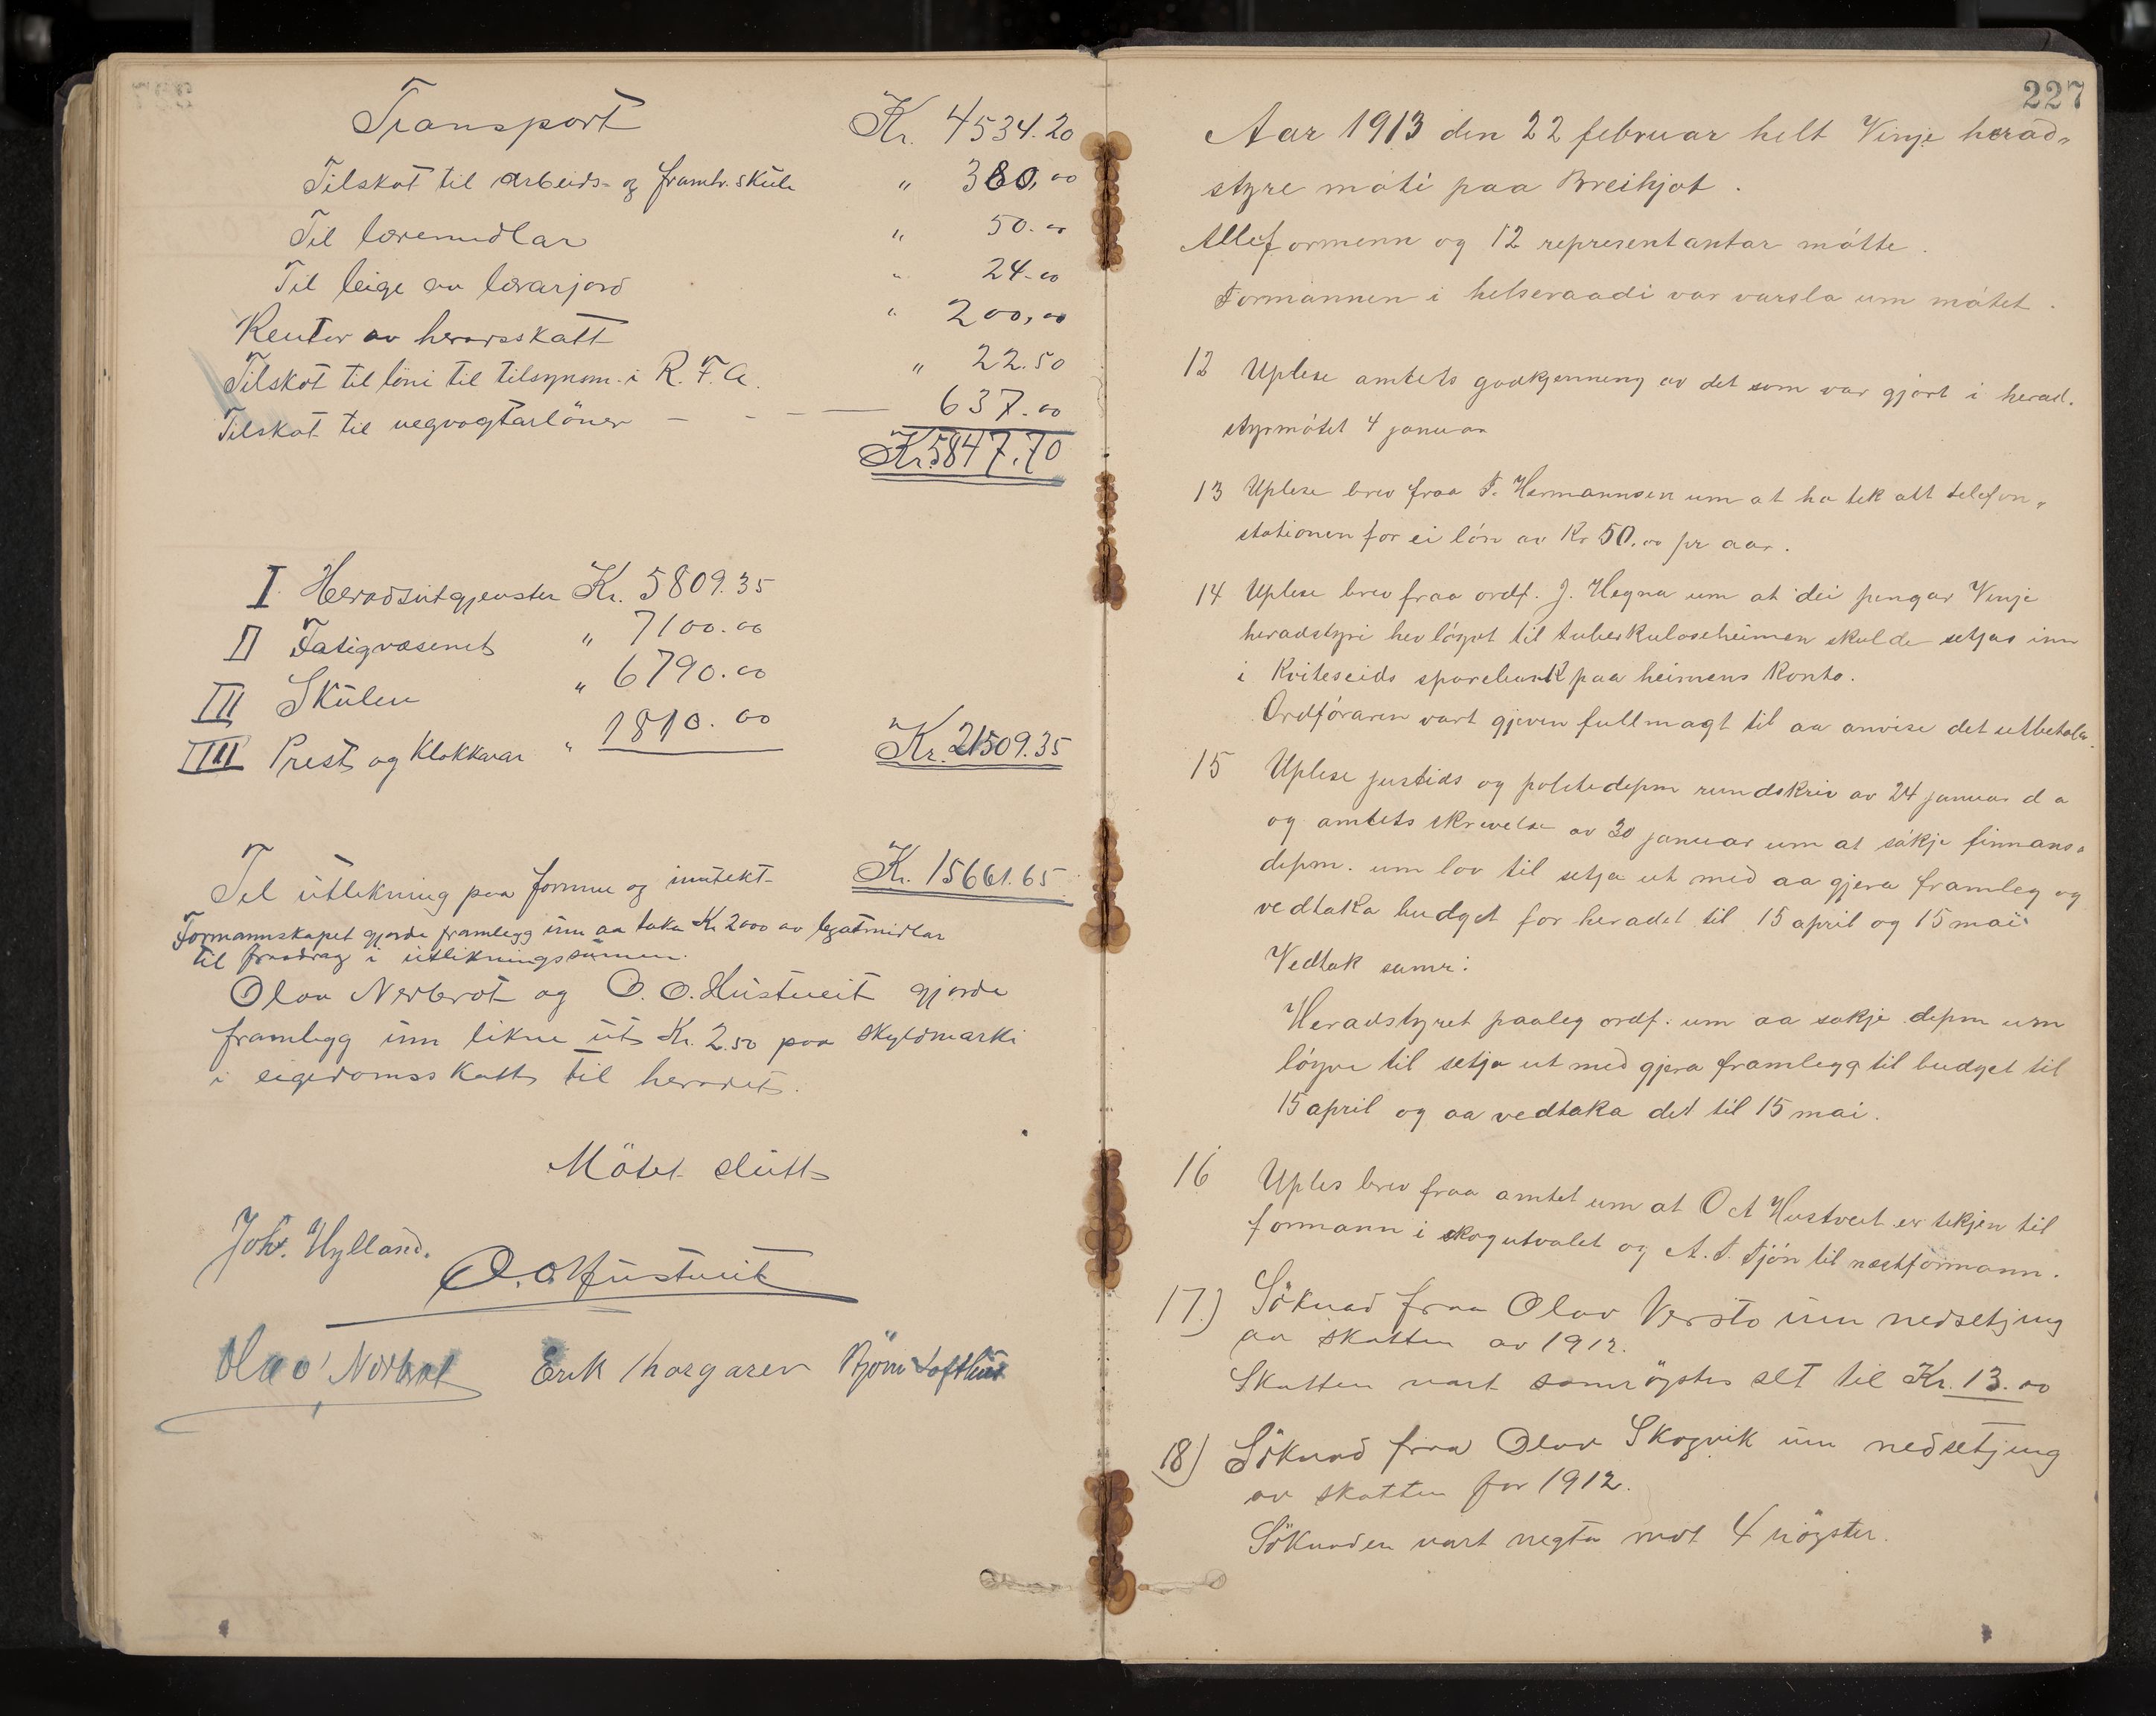 Transport Kr. 4534.20
Tilskot til arbeids- og framh. skule " 380,00
Til læremidlar " 50.00
Til leige av lærarjord " 24.00
Rentor av heradsskatt " 200,00
Tilskot til löni til tilsynsm. i R. F. A. " 22.50
Tilskot til vegvogtarlöner - - - — 637.00
Kr. 5847.70
I Heradsutgjenster Kr. 5809.35
II Fatigvæsenet " 7100.00
III Skulen " 6790.00
IIII Prest og Klokkarar " 1810.00 Kr. 21509.35
Til utlikning paa formue og inntekt Kr. 15661.65
Formannskapet gjorde framlegg um aa taka Kr 2000 av legatmidlar
til fraadrag i utlikningssumen.
Olav Nerbrot og O. O. Hustveit gjorde
framlegg um likne ut Kr. 2.50 paa skyldmarki
i eigedomsskatt til heradet.
Mötet slutt
Joh. Hylland.
O. O. Hustveit
Olav Nerbrot Erik Bjørn Lofthus
227
Aar 1913 den 22 februar helt Vinje herad-
styre móti paa Breihjot.
Alle formenn og 12 representantar mótte.
Formannen i helseraadi var varsla um mótet.
12 Uplese amtets godkjenning av det som var gjort i herad.
styrmótet 4 januar
13 Uplese brev fraa T. Hermannsen um at ho tek att telefon-
stationen for ei lón av Kr 50.00 pr aar.
14 Uplese brev fraa ordf. J. Hegna um at dei pengar Vinje
heradstyri hev lóyvt til tuberkuloseheimen skulde setjas inn
i Kviteseids sparebank paa heimens Konto.
Ordfóraren vart gjeven fullmagt til aa anvise det utbetala.
15 Uplese justids og politidepm rundskriv av 24 januar d a
og amtets skrivelse av 30 januar um at sókje finnans-
depm. um lov til setja ut med aa gjera framleg og
vedtaka budget for heradet til 15 april og 15 mai.
Vedtak samr:
Heradstyret paaleg ordf. um aa sokje depm um
lóyve til setja ut med gjera framlegg til budget til
15 april og aa vedtaka det til 15 mai.
16 Uples brev fraa amtet um at O A Hustveit er tekjen til
formann i skogutvalet og A. T. Tjón til næstformann.
17.) Söknad fraa Olav Versto um nedsetjing
av skatten av 1912.
Skatten vart samröystes sett til Kr. 13.00
18) Söknad fraa Olav Skogvik um nedsetjing
av skatten for 1912.
Söknaden vart negta mot 4 röyster.